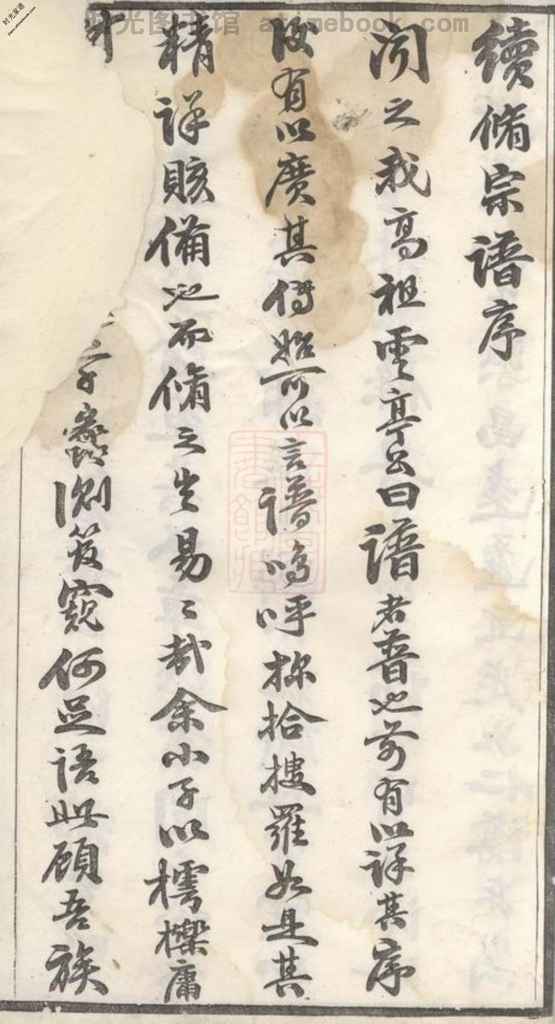 續脩宗譜序
聞之我高祖雲亭公曰譜者普也前有以詳其序
後有以廣其傳始可以言譜嗚呼採拾搜羅如是其
精詳賅備也而脩之豈易易哉余小子以樗櫟庸
才蠡測管窺何足語此顧吾族
时光图书馆 atimebook.com